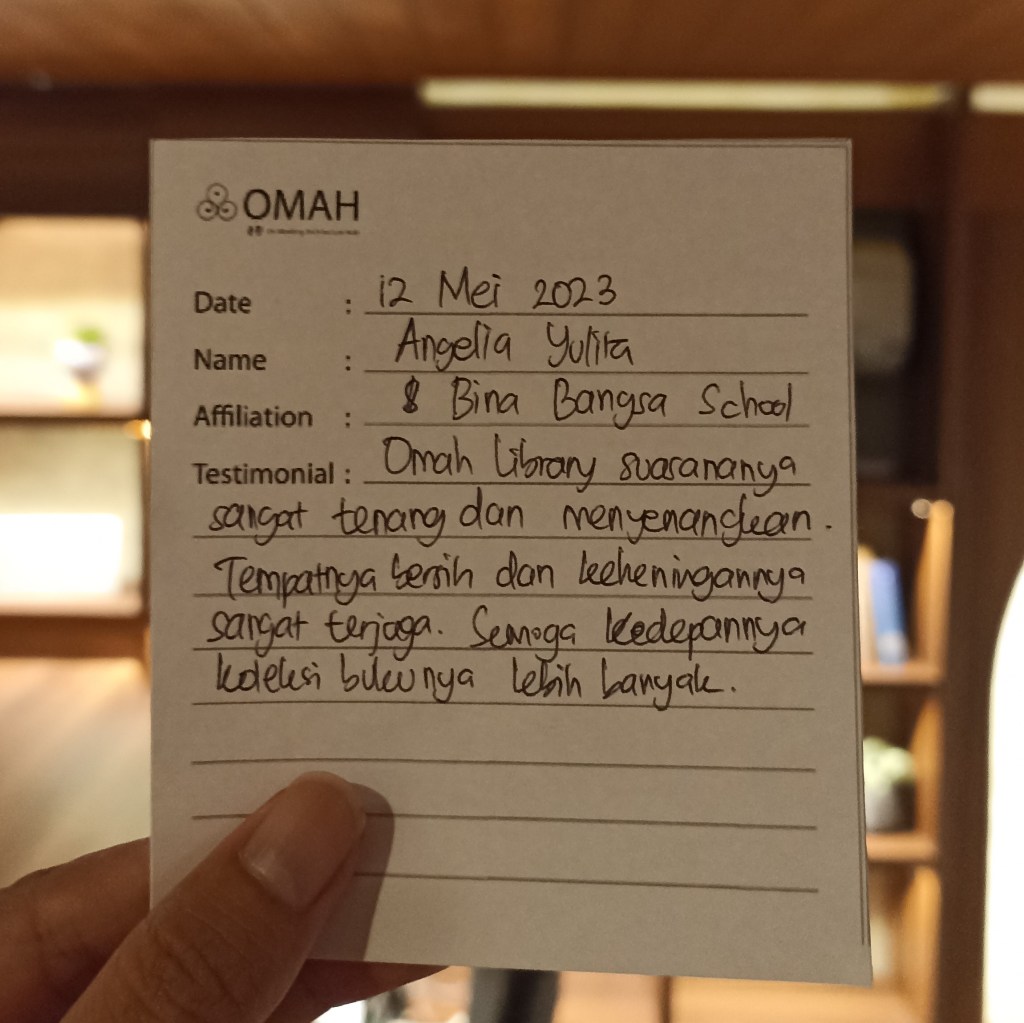 OMAH
Date : 12 Mei 2023
Name : Angelia Yulita
Affiliation : Bina Bangsa School
Testimonial : Omah Library suasananya
sangat tenang dan menyenangkan.
Tempatnya bersih dan keheningannya
sangat terjaga. Semoga kedepannya
koleksi bukunya lebih banyak.